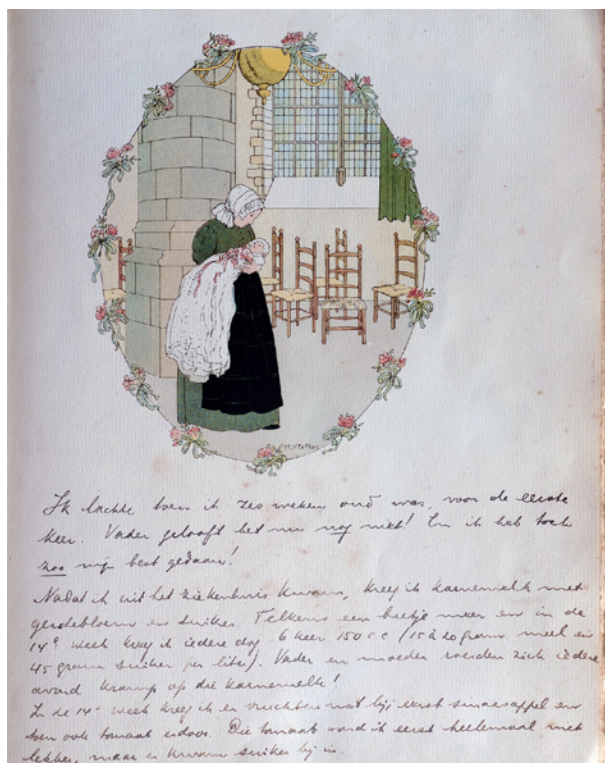 H.W. le Mair
Ik lachte toen ik zes weken oud was, voor de eerste
keer. Vader gelooft het nu nog niet! En ik heb toch
zoo mijn best gedaan!
Nadat ik uit het ziekenhuis kwam, kreeg ik karnemelk met
gerstebloem en suiker. Telkens een beetje meer en in de
14e week kreeg ik iedere dag 6 keer 150 c.c. (15 à 20 gram meel en
45 gram suiker per liter). Vader en moeder roerden zich iedere
avond kramp op die karnemelk!
In de 14e week kreeg ik er vruchten nat bij eerst sinaasappel en
toen ook tomaat. Die tomaat vond ik eerst heelemaal niet
lekker, maar er kwam suiker bij in.